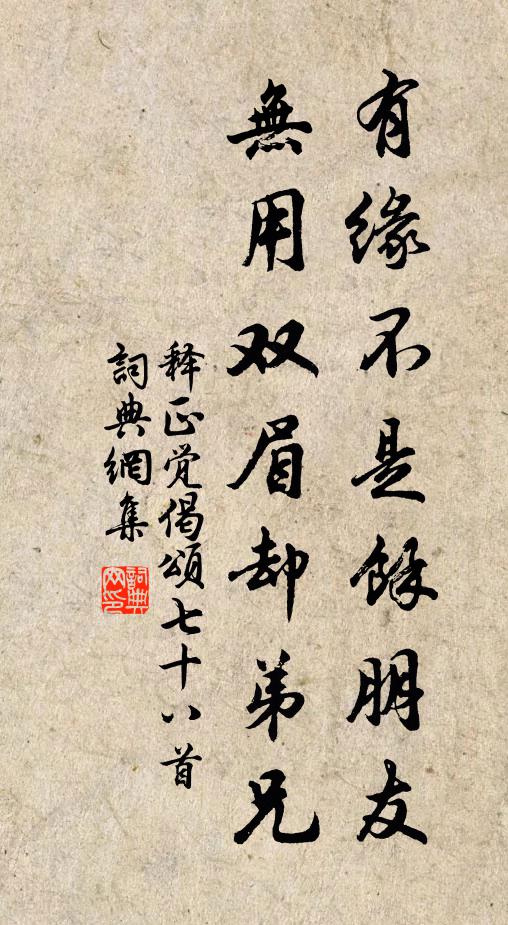 有缘不是餘朋友
無用双眉却弟兄
释正觉偈頌七十八首
詞典網集
詞典网印